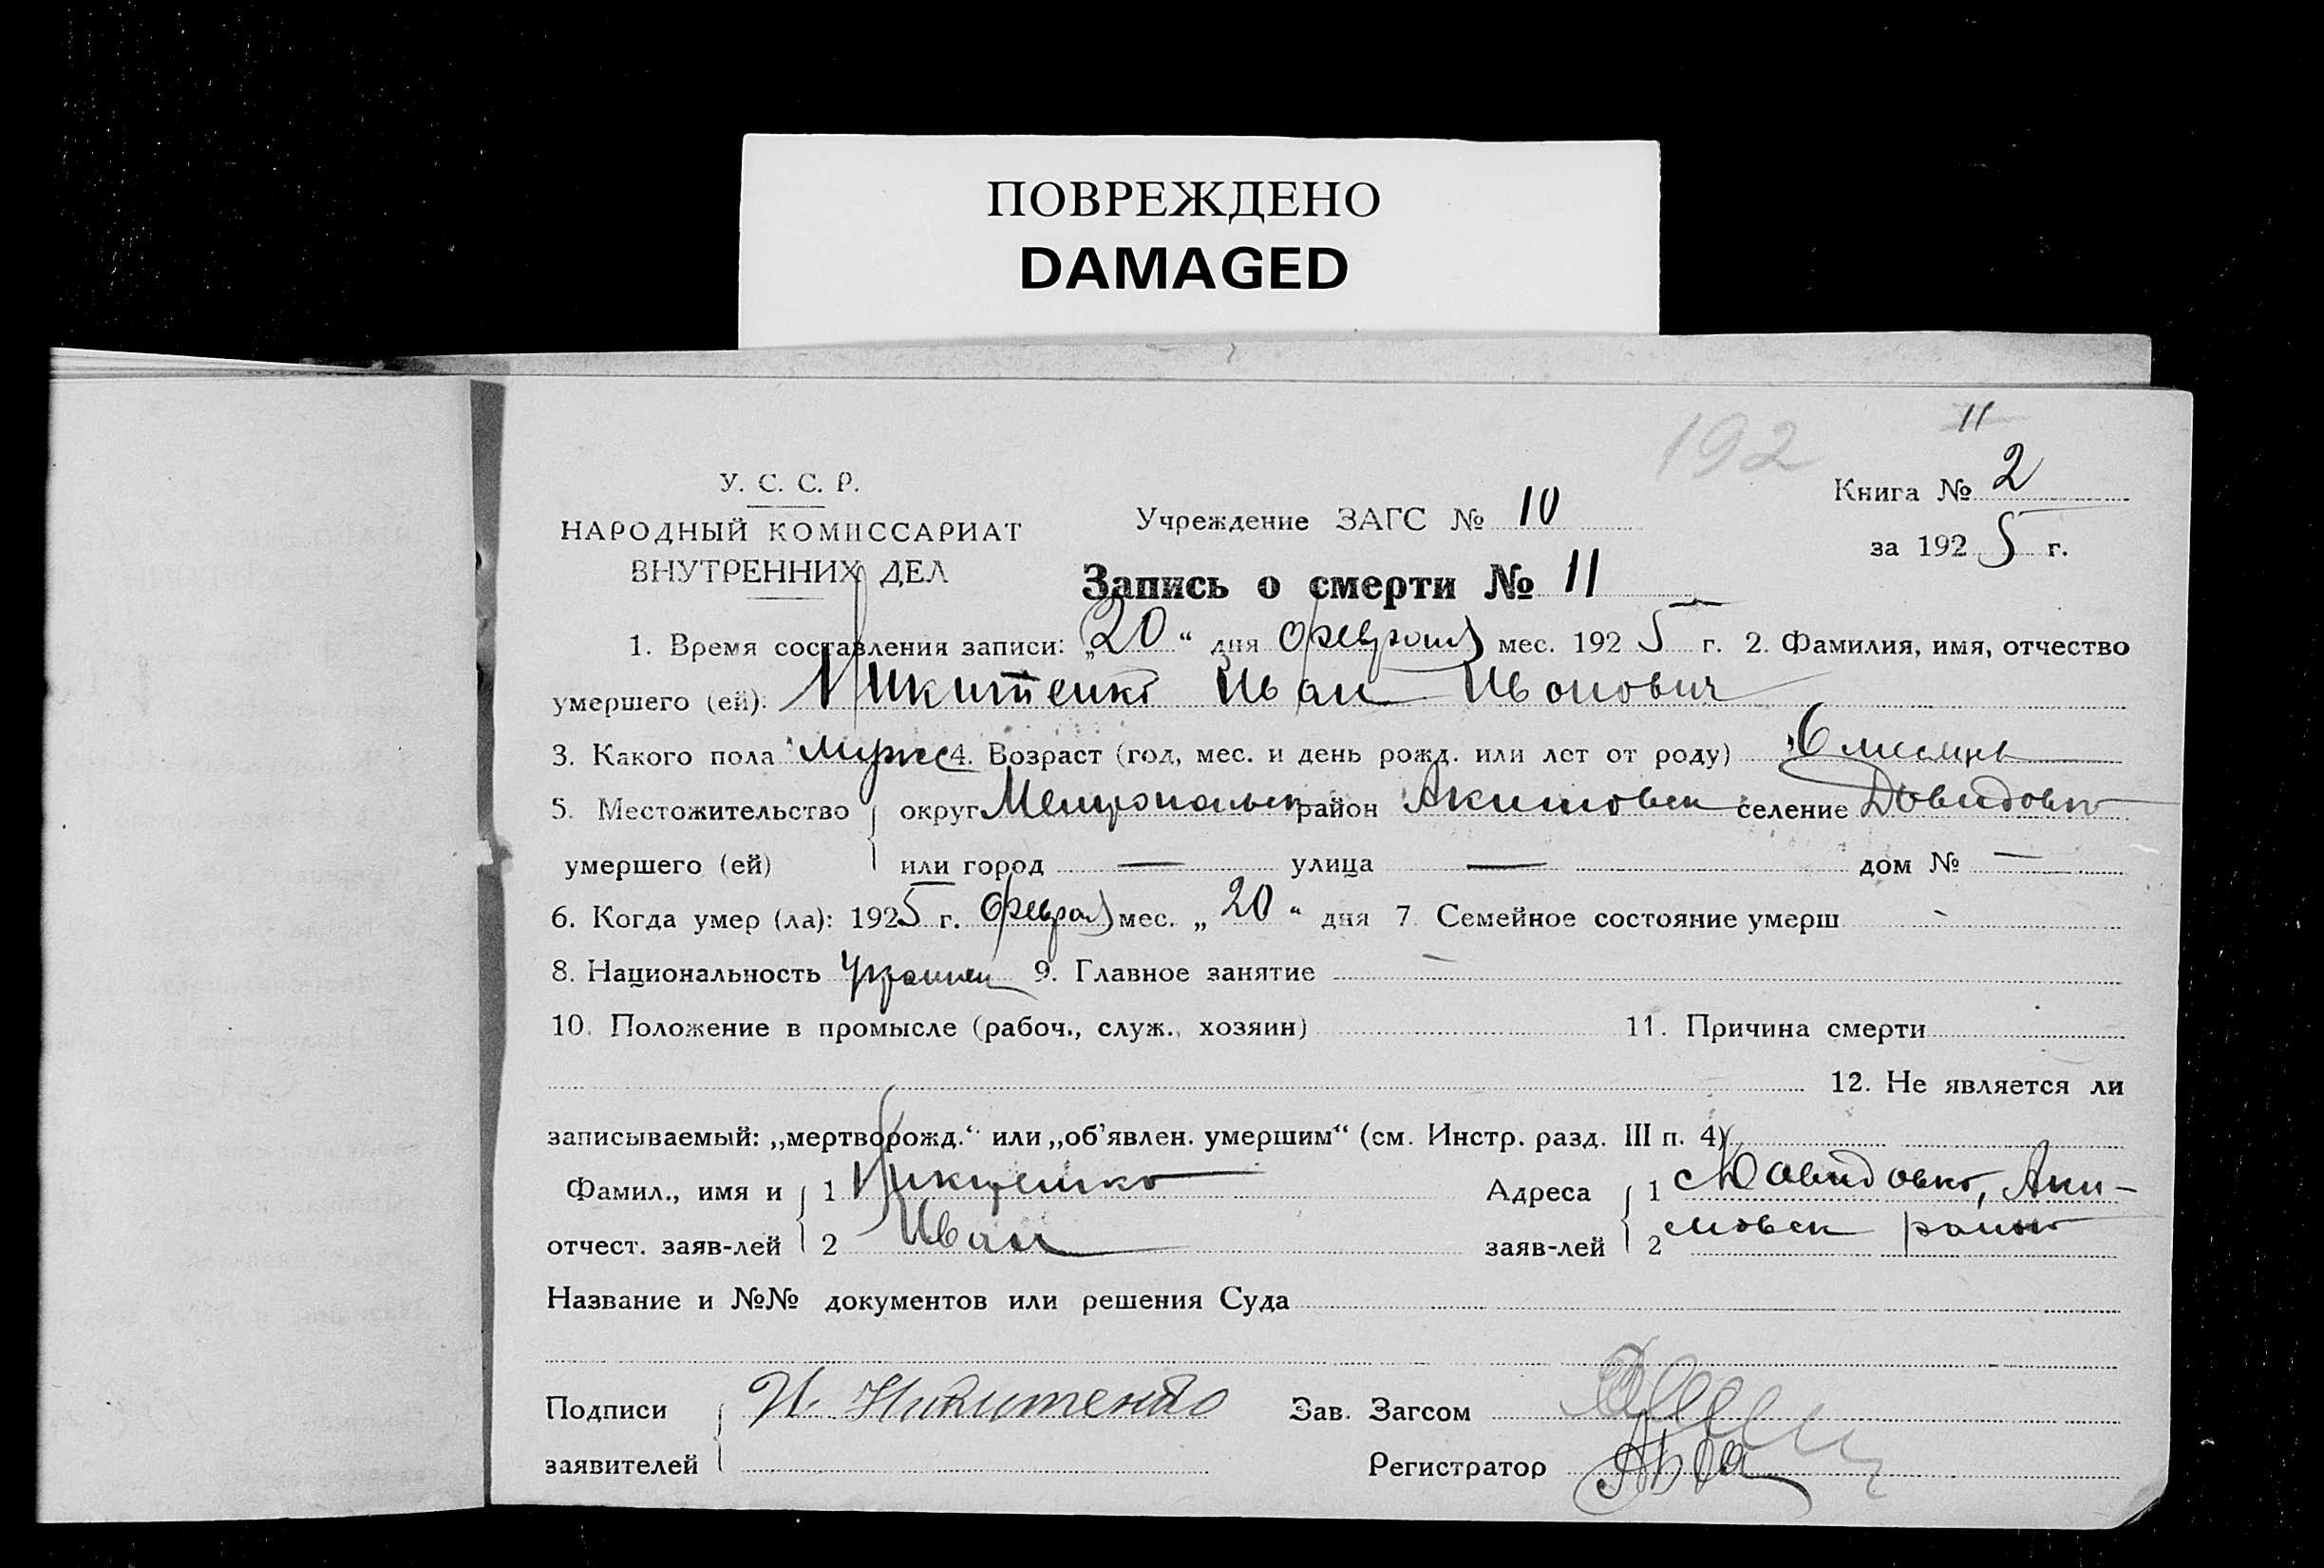 ПОВРЕЖДЕНО
DAMAGED
192
11
У. С. С. Р.
НАРОДНЫЙ КОМИССАРИАТ
ВНУТРЕННИХ ДЕЛ
Учреждение ЗАГС № 10
Книга № 2
за 1925 г.
Запись о смерти № 11
1. Время составления записи: „20“ дня февраля мес. 1925 г. 2. Фамилия, имя, отчество
умершего (ей): Никитенко Иван Иванович
3. Какого пола мужс 4. Возраст (год, мес. и день рожд. или лет от роду) 6 месяцев
5. Местожительство умершего (ей) { округ Мелитопольск район Акимовск селение Давидовка
или город — улица — дом № —
6. Когда умер (ла): 1925 г. Феврал мес. „20“ дня 7. Семейное состояние умерш -
8. Национальность Украинец 9. Главное занятие —
10. Положение в промысле (рабоч., служ., хозяин) 11. Причина смерти
12. Не является ли
записываемый: „мертворожд.“ или „об’явлен. умершим“ (см. Инстр. разд. III п. 4)
Фамил., имя и { 1 Никитенко Адреса { 1 с Давидовка, Аки-
отчест. заяв-лей 2 Иван заяв-лей 2 мовск район
Название и №№ документов или решения Суда
Подписи { И. Никитенко Зав. Загсом
заявителей Регистратор